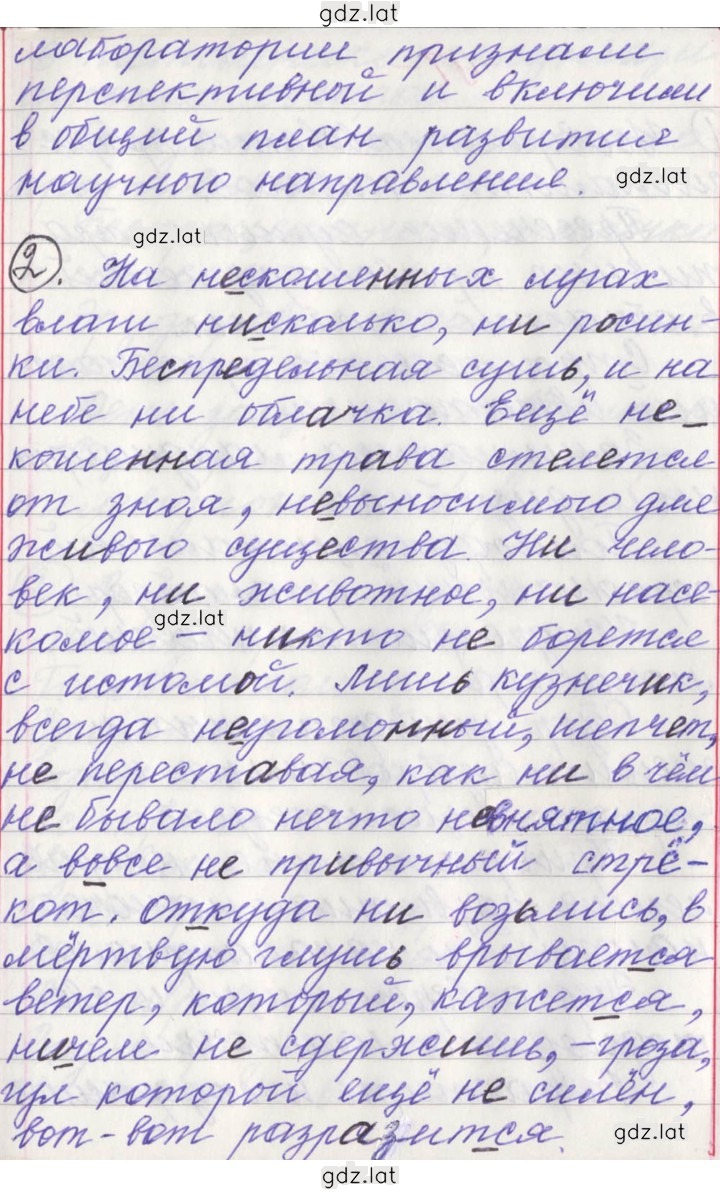 gdz.lat
лаборатории признали
перспективной и включили
в общий план развития
научного направления.
gdz.lat
gdz.lat
2. На нескошенных лугах
влаги нисколько, ни росин-
ки. Беспредельная сушь, и на
небе ни облачка. Ещё не
кошенная трава стелется
от зноя, невыносимого для
живого существа. Ни чело-
век, ни животное, ни насе-
gdz.lat
комое – никто не борется
с истомой. Лишь кузнечик,
всегда неугомонный, шепчет,
не переставая, как ни в чём
не бывало нечто невнятное,
а вовсе не привычный стрё-
кот. Откуда ни возьмись, в
мёртвую глушь врывается
ветер, который, кажется,
ничем не сдержишь, – гроза,
гул которой ещё не силён,
вот-вот разразится.
gdz.lat
gdz.lat